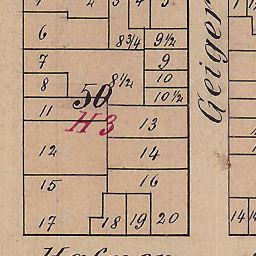 6
8¾ 9½
7
9
8
8½
10
50
10½
11
H3
13
12
14
15
16
17
18 19 20
Geiger
14